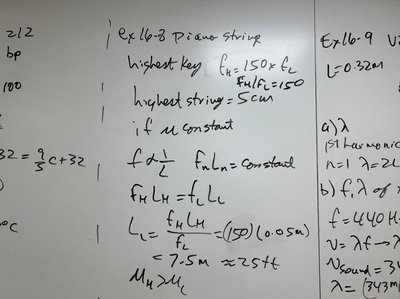 212
bp
100
32 = 9/5 C + 32
°C
Ex 16-8 Piano string
highest key f_H = 150 x f_L
f_H/f_L = 150
highest string = 5cm
if μ constant
f ∝ 1/L f_n L_n = constant
f_H L_H = f_L L_L
L_L = f_H L_H / f_L = (150)(0.05m)
= 7.5m ≈ 25ft
μ_H > μ_L
Ex 16-9
L = 0.32m
a) λ
1st harmonic
n=1 λ=2L
b) f, λ of
f = 440 H
v = fλ → λ
v_sound = 34
λ = (343 m/